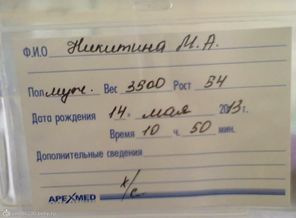 Ф.И.О Никитина М.А.
Пол муж. Вес 3500 Рост 54
Дата рождения 14. мая 2013г.
Время 10 ч. 50 мин.
Дополнительные сведения
к/с
APEXMED